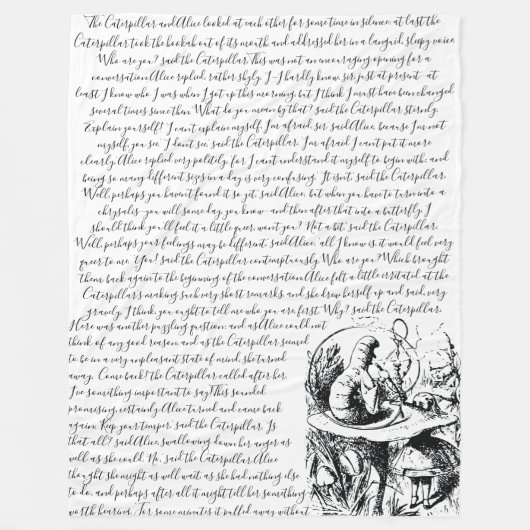 The Caterpillar and Alice looked at each other for some time in silence: at last the
Caterpillar took the hookah out of its mouth, and addressed her in a languid, sleepy voice.
Who are you?' said the Caterpillar. This was not an encouraging opening for a
conversation. Alice replied, rather shyly, I--I hardly know, sir, just at present-- at
least I know who I was when I got up this morning, but I think I must have been changed
several times since then. What do you mean by that?' said the Caterpillar sternly.
Explain yourself!' I can't explain myself, I'm afraid, sir' said Alice, because I'm not
myself, you see.' I don't see,' said the Caterpillar. I'm afraid I can't put it more
clearly, Alice replied very politely, for I can't understand it myself to begin with; and
being so many different sizes in a day is very confusing.' It isn't,' said the Caterpillar.
Well, perhaps you haven't found it so yet,' said Alice; but when you have to turn into a
chrysalis--you will some day, you know--and then after that into a butterfly, I
should think you'll feel it a little queer, won't you?' Not a bit,' said the Caterpillar.
Well, perhaps your feelings may be different,' said Alice; all I know is, it would feel very
queer to me.' You!' said the Caterpillar contemptuously. Who are you?' Which brought
them back again to the beginning of the conversation. Alice felt a little irritated at the
Caterpillar's making such very short remarks, and she drew herself up and said, very
gravely, I think, you ought to tell me who you are, first.' Why?' said the Caterpillar.
Here was another puzzling question; and as Alice could not
think of any good reason, and as the Caterpillar seemed
to be in a very unpleasant state of mind, she turned
away. Come back!' the Caterpillar called after her.
I've something important to say!' This sounded
promising, certainly: Alice turned and came back
again. Keep your temper,' said the Caterpillar. Is
that all?' said Alice, swallowing down her anger as
well as she could. No,' said the Caterpillar. Alice
thought she might as well wait, as she had nothing else
to do, and perhaps after all it might tell her something
worth hearing. For some minutes it puffed away without